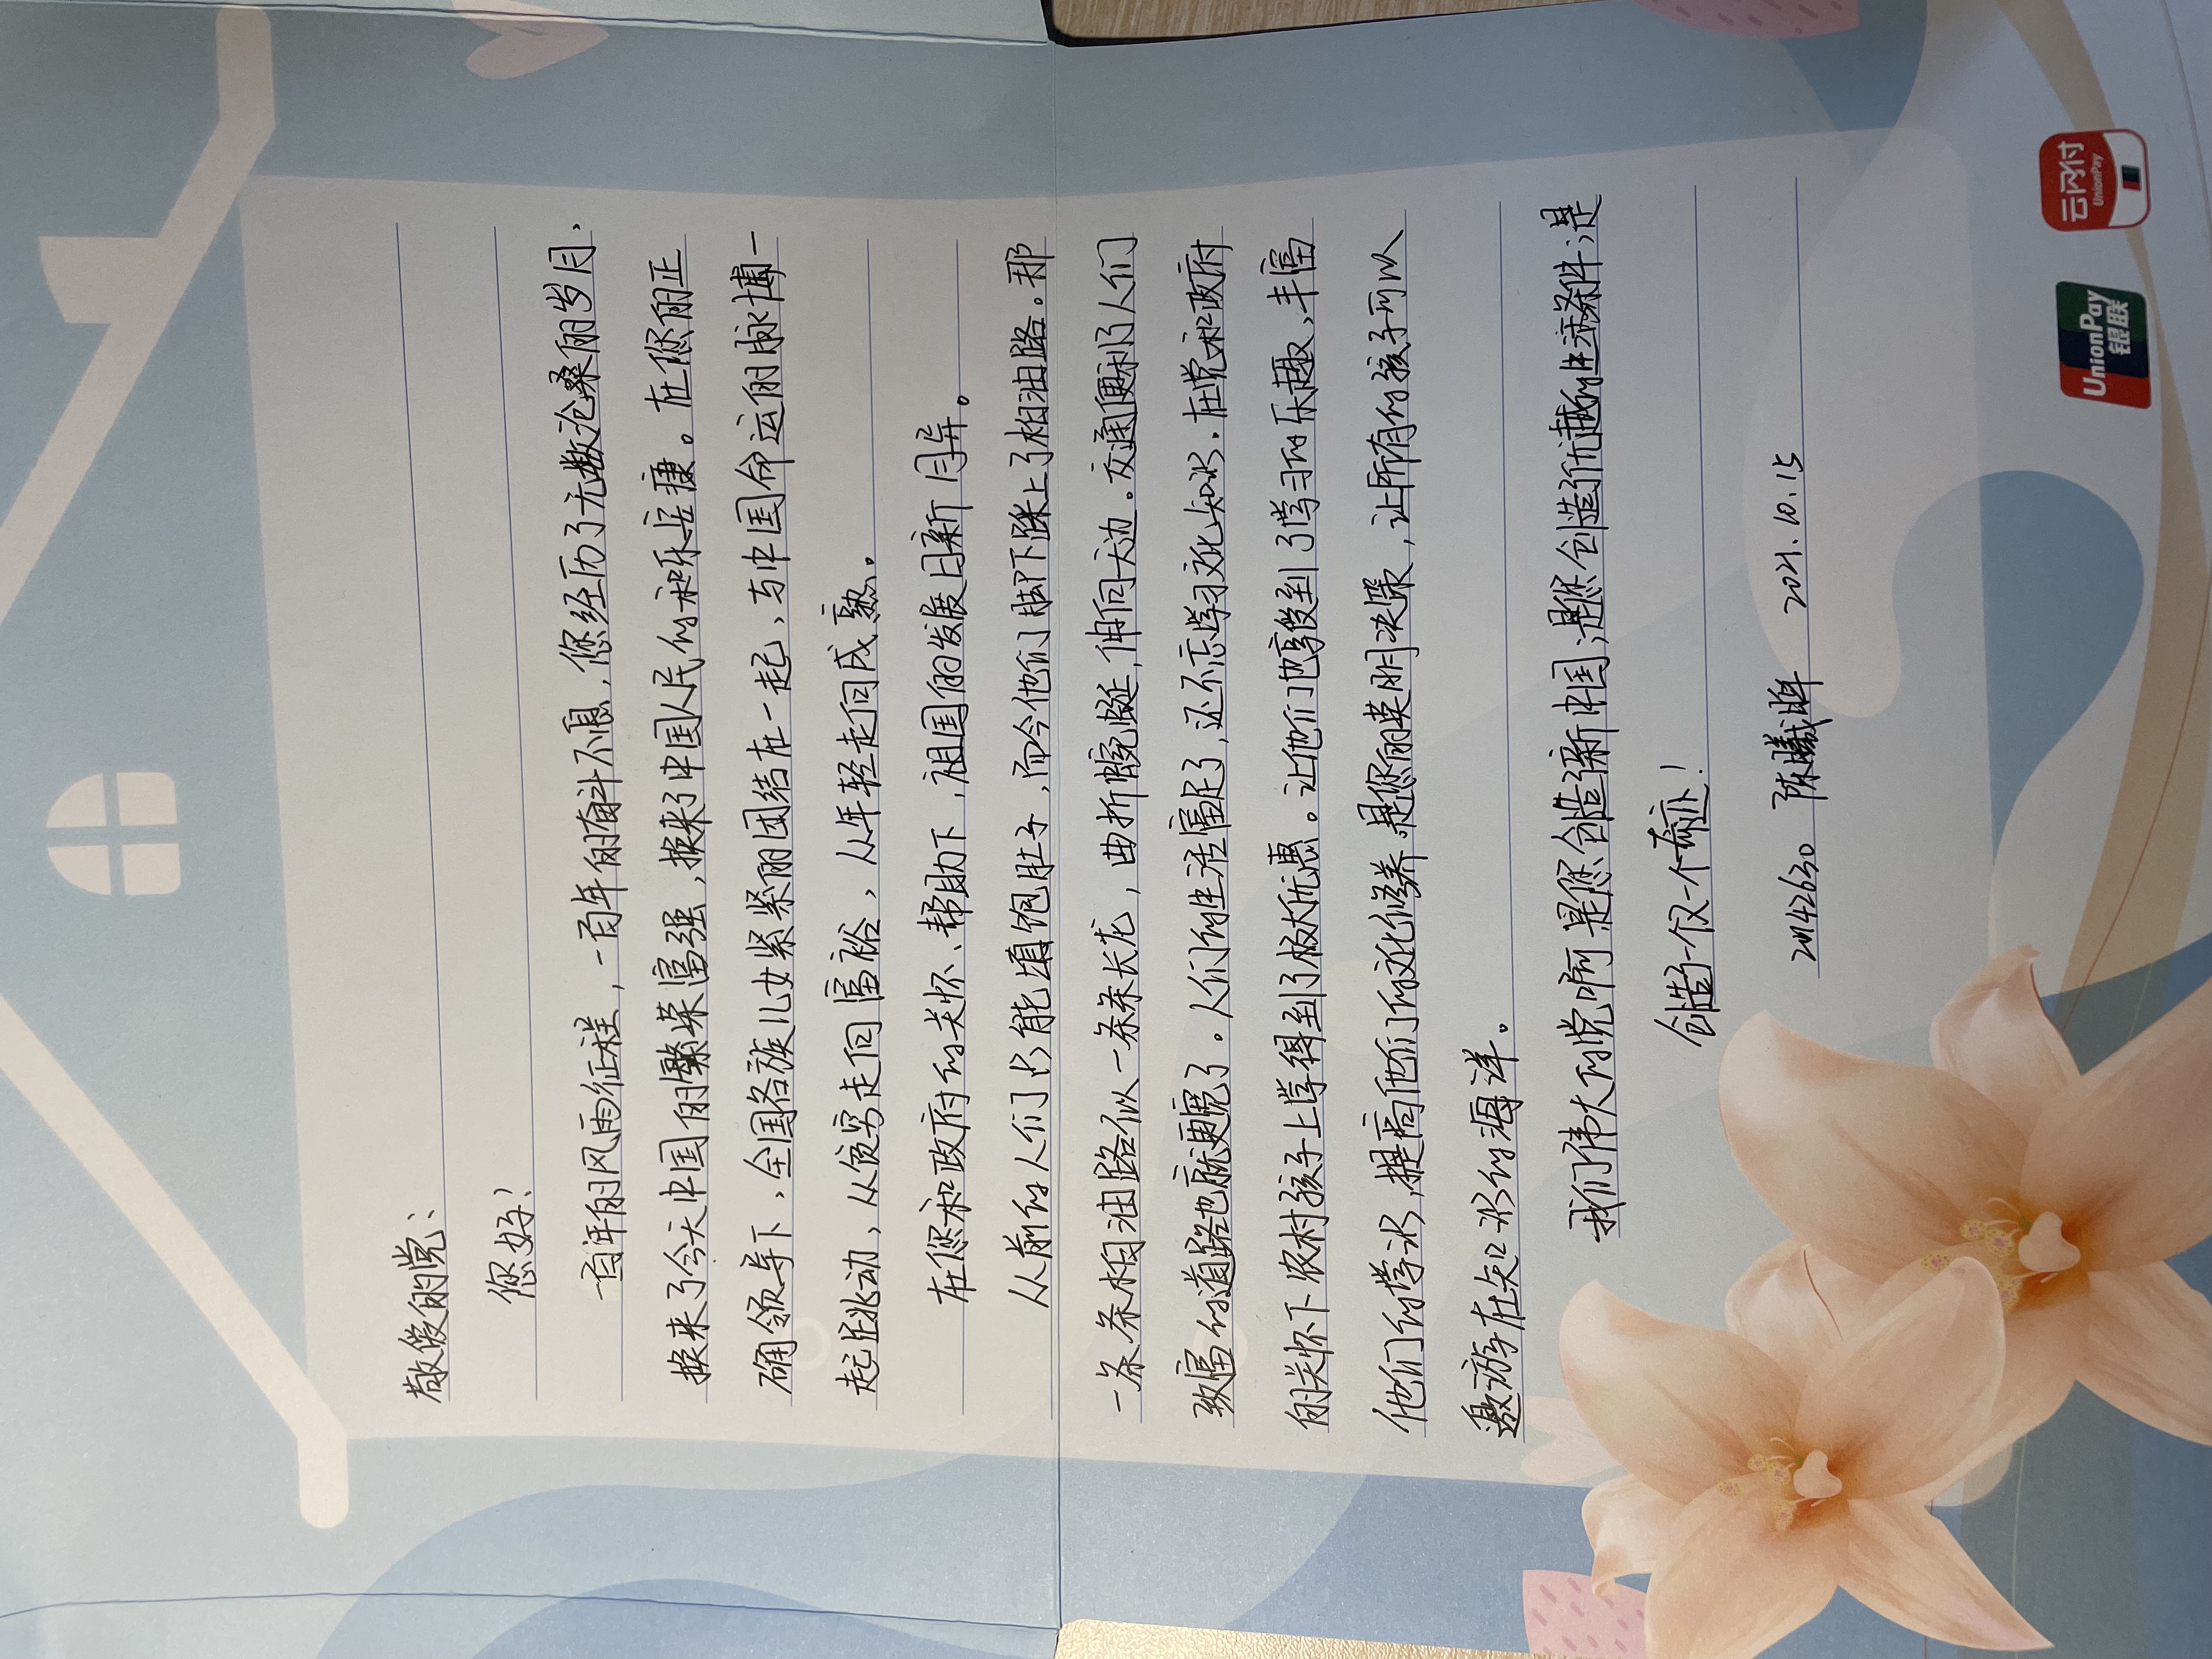 敬爱的党：
您好！
百年的风雨征程，一百年的奋斗不息，您经历了无数沧桑的岁月，
换来了今天中国的繁荣富强，换来了中国人民的和乐安康。在您的正
确领导下，全国各族儿女紧紧的团结在一起，与中国命运的脉博一
起跳动，从贫穷走向富裕，从年轻走向成熟。
在您和政府的关怀、帮助下，祖国的发展日新月异。
从前的人们只能填饱肚子，而今他们脚下踩上了柏油路。那
一条条柏油路似一条条长龙，曲折蜿蜒，伸向天边。交通便利了人们
致富的道路也就更宽了。人们的生活富足了，还不忘学习文化知识，在党和政府
的关怀下农村孩子上学得到了极大优惠。让他们也享受到了学习的乐趣，丰富
他们的学识，提高他们的文化修养。是您的英明决策，让所有的孩子可以
遨游在知识的海洋。
我们伟大的党啊，是您创造新中国，是您创造优越的生活条件，是
创造一个又一个奇迹！
陈曦 2021.10.15
云闪付
UnionPay
UnionPay
银联